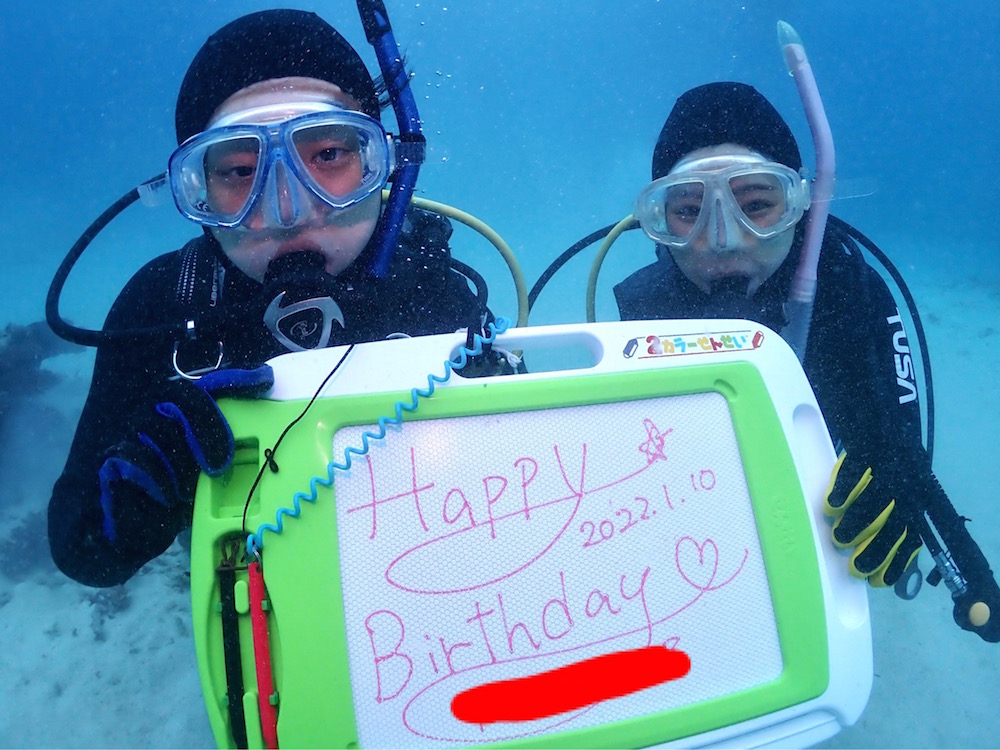 2カラーせんせい
Happy
2022.1.10
Birthday
TUSA